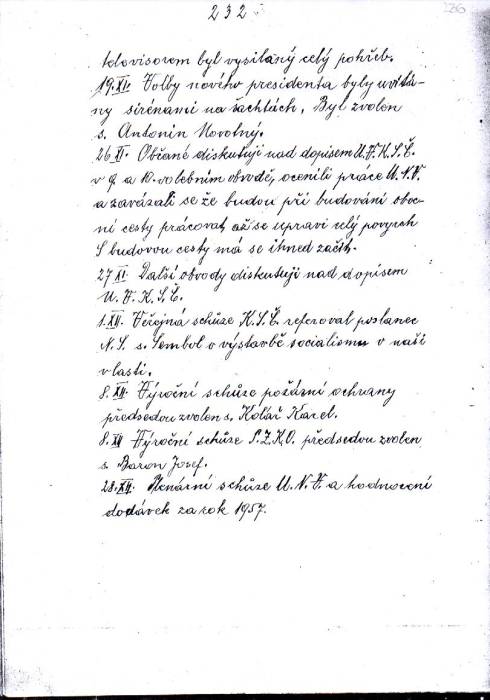 232
236
televisorem byl vysilaný celý pohřeb.
19.XI. Volby nového presidenta byly uvítá-
ny sirénami na šachtách. Byl zvolen
s. Antonín Novotný.
26 XI. Občané diskutují nad dopisem Ú.V.K.S.Č.
v 9 a 10. volebním obvodě, ocenili práce M.N.V.
a zavázali se že budou při budování obec-
ní cesty pracovat, až se upraví celý povrch
S budovou cesty má se ihned začít.
27 XI. Další obvody diskutují nad dopisem
Ú.V.K.S.Č.
1.XII. Veřejná schůze K.S.Č. referoval poslanec
N.S. s. Sembol o výstavbě socialismu v naší
vlasti.
8.XII. Výroční schůze požární ochrany
předsedou zvolen s. Kolář Karel.
8.XII Výroční schůze předsedou zvolen
s. Baron Josef.
28.XII. Plenární schůze M.N.V. a hodnocení
dodávek za rok 1957.